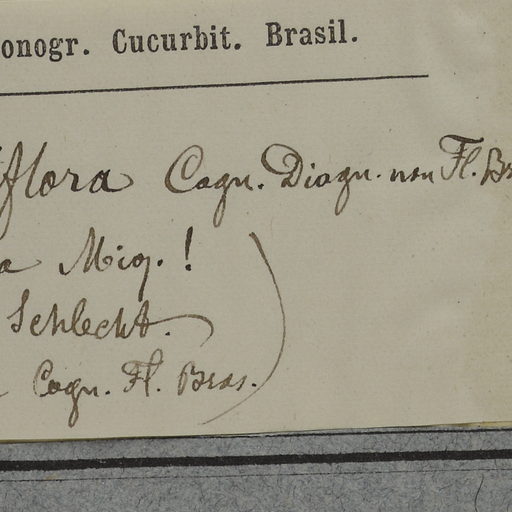 onogr. Cucurbit. Brasil.
flora Cogn. Diagn. non Fl. Br
a Miq. !
Schlecht.
Cogn. Fl. Bras.)